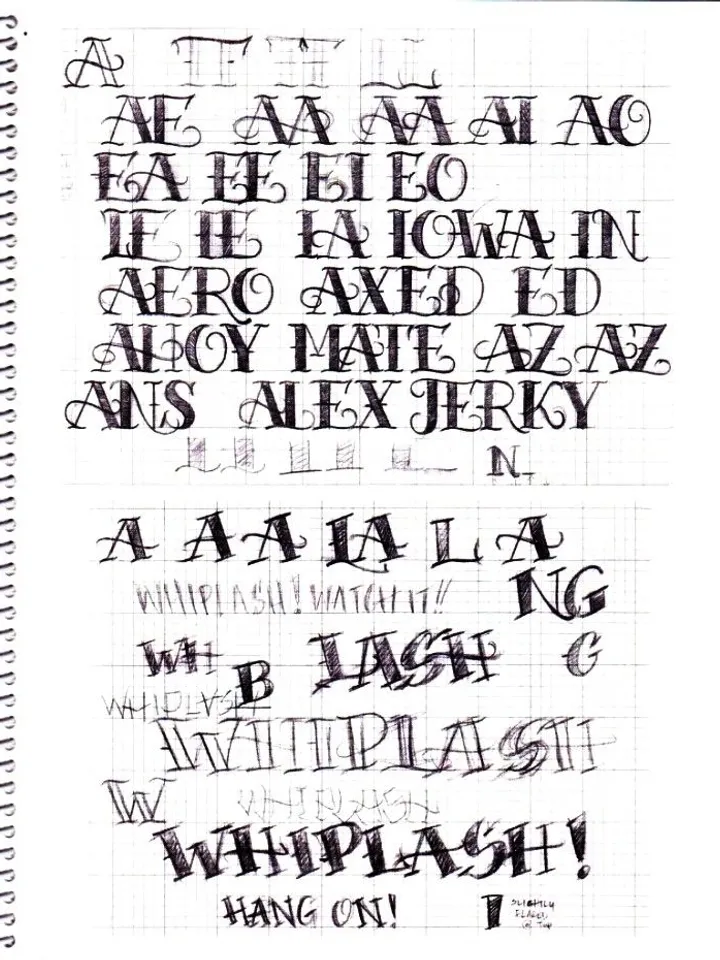 A
AE AA AA AI AO
EA EE EI EO
IE IE IA IOWA IN
AERO AXED ED
AHOY MATE AZ AZ
ANS ALEX JERKY
N
A A A LA L A
WHIPLASH! WATCH IT!!
NG
WH B LASH G
WHIPLASH
WHIPLASH
W WHIPLASH
WHIPLASH!
HANG ON!
SLIGHTLY
FLARED
W/ TOP